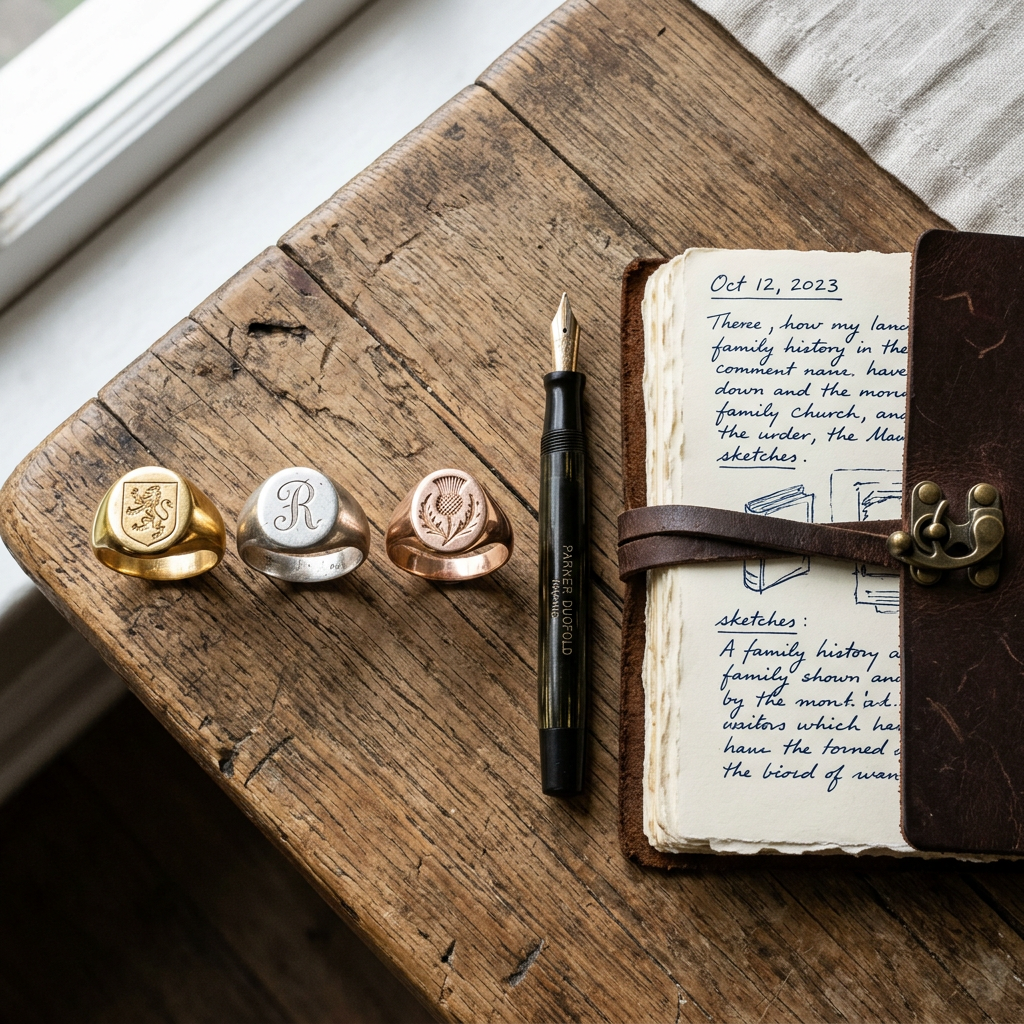 R
PARKER DUOFOLD
Oct 12, 2023
Theree, how my lanc
family history in the
comment name. have
down and the mond
family Church, and
the urder, the Mau
sketches.
sketches:
A family history a
family shown and
by the mont. 'at.
waitors which has
haue the torned
the biord of wan